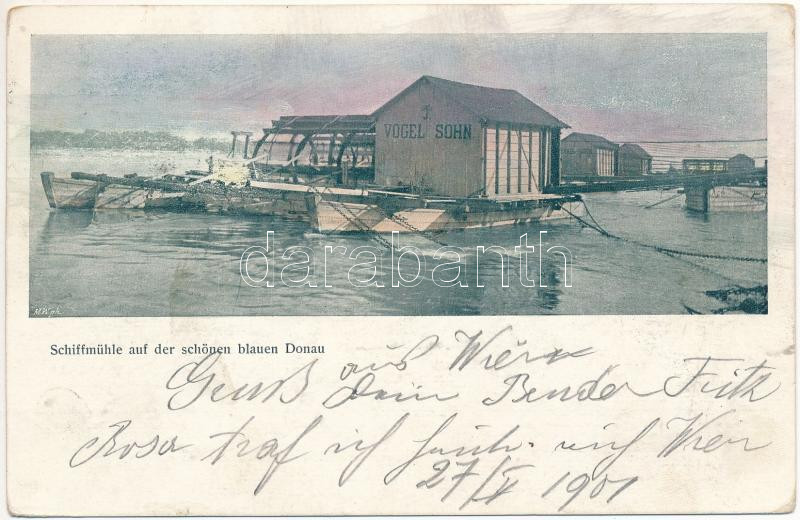 J.
VOGEL SOHN
darabanth
M.W.ph.
Schiffmühle auf der schönen blauen Donau
Gruß aus Wien
dein Bruder Fritz
Rosa traf ich in Wien
27/V 1901